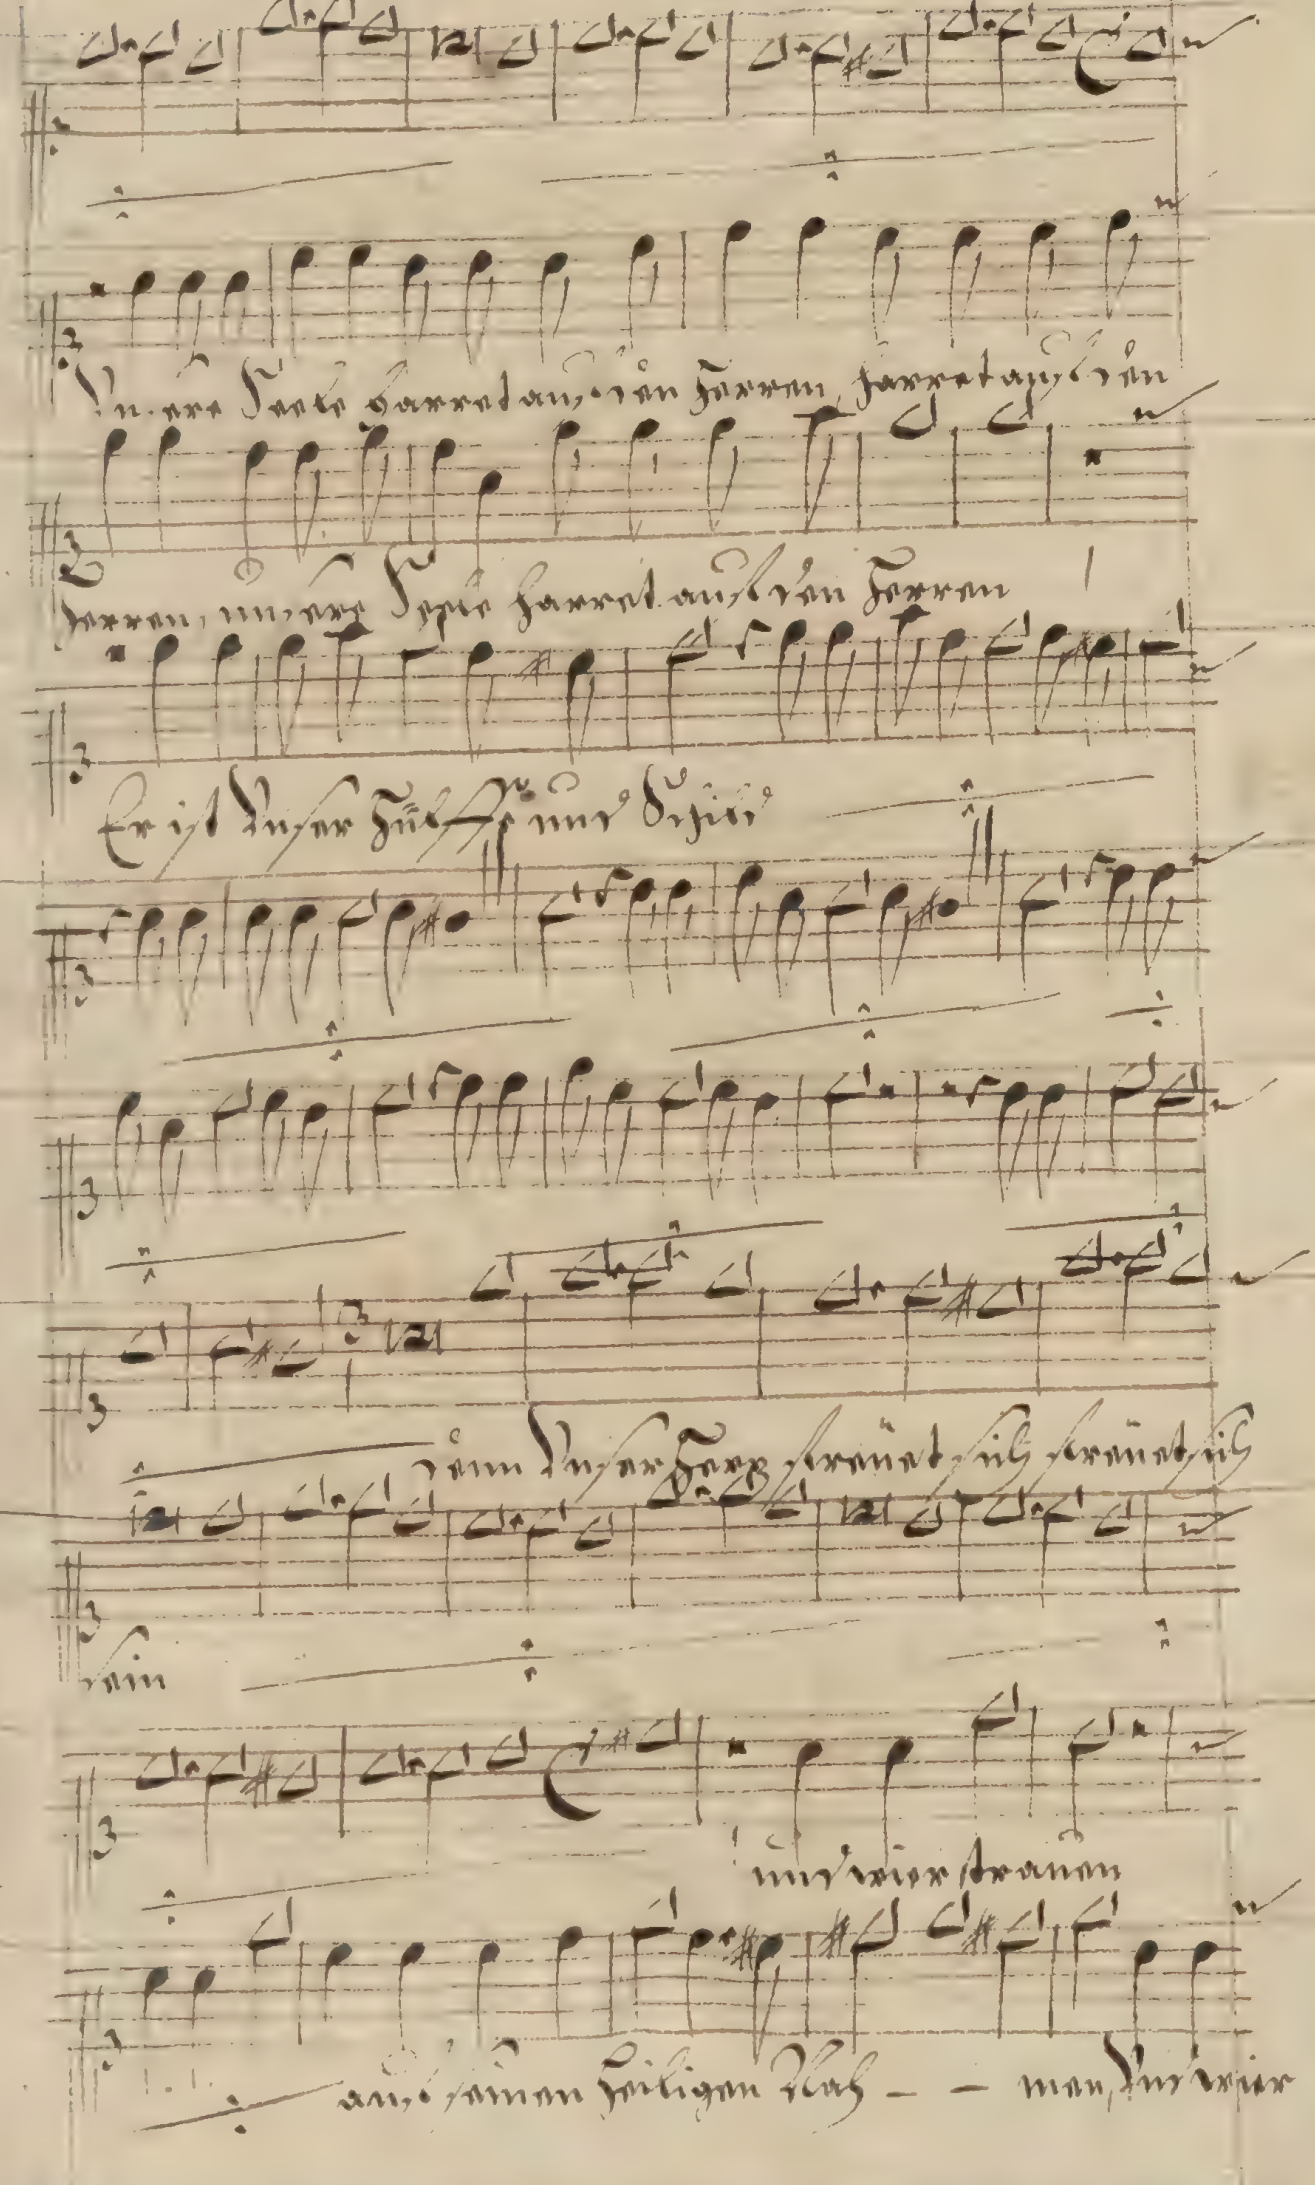 Unsere Seele harret auf den Herren, harret auf den
Herren, unsere Seele harret auf den Herren
Er ist Unser Hülffe und Schild
denn Unser Hertz freuet sich freuet sich
sein
und wier trauen
auf seinen Heiligen Nah - - men, Und wier